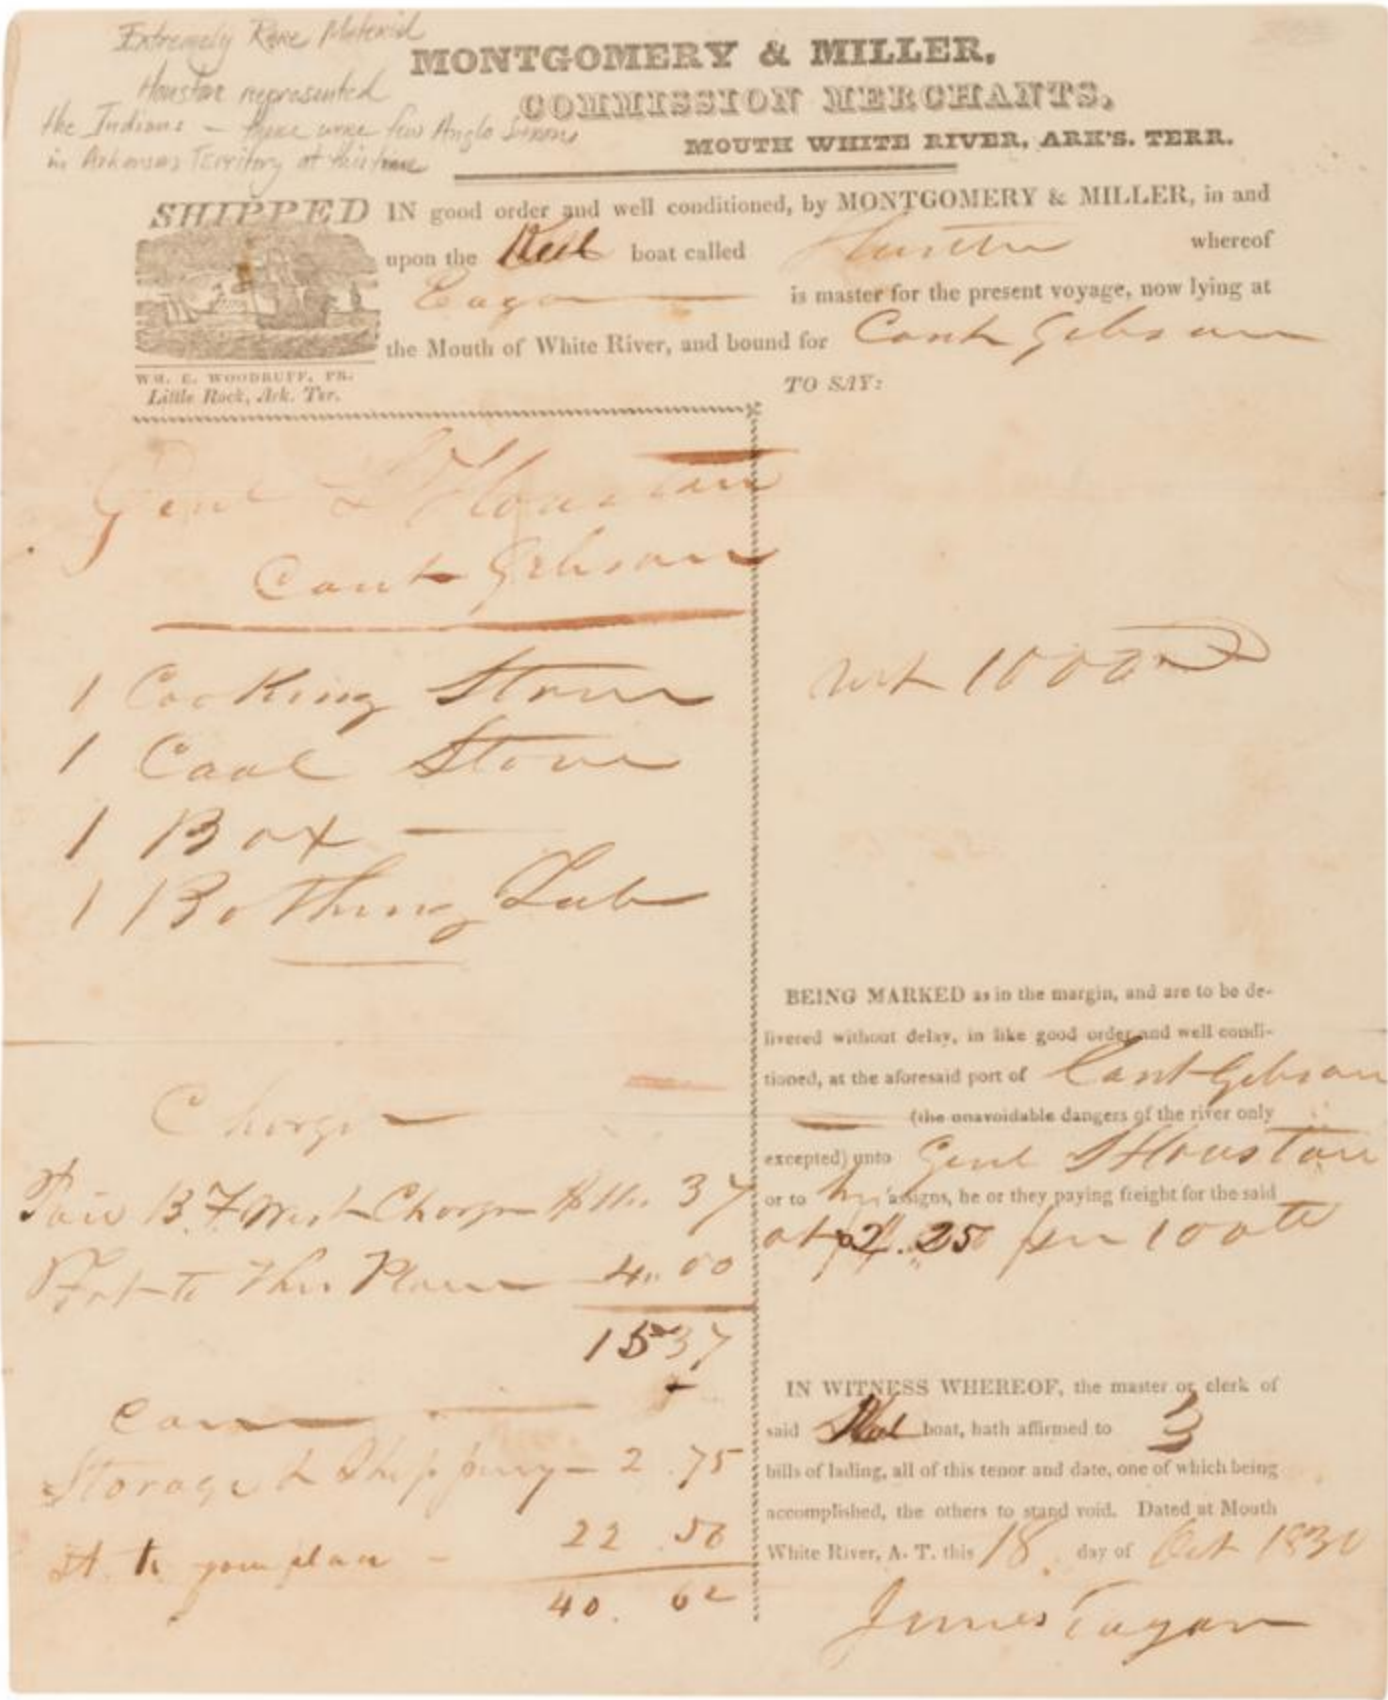 Extremely Rare Material
Houston represented
the Indians — there were few Anglo Saxons
in Arkansas Territory at this time
MONTGOMERY & MILLER,
COMMISSION MERCHANTS,
MOUTH WHITE RIVER, ARK'S. TERR.
SHIPPED IN good order and well conditioned, by MONTGOMERY & MILLER, in and
upon the Keel boat called whereof
Eagan is master for the present voyage, now lying at
the Mouth of White River, and bound for Cant Gibson
WM. E. WOODRUFF, PR.
Little Rock, Ark. Ter.
TO SAY:
Genl S Houston
Cant Gibson
1 Cooking Stove
wt 1000
1 Coal Stove
1 Box —
1 Bathing Tub
BEING MARKED as in the margin, and are to be de-
livered without delay, in like good order and well condi-
tioned, at the aforesaid port of Cant Gibson
(the unavoidable dangers of the river only
excepted) unto Genl S Houston
or to his assigns, he or they paying freight for the said
at $2.25 per 100
Charges
Paid B. F. West Charges $11. 37
Frt to This Place 4.. 00
15 37
IN WITNESS WHEREOF, the master or clerk of
said Keel boat, hath affirmed to 3
bills of lading, all of this tenor and date, one of which being
accomplished, the others to stand void. Dated at Mouth
White River, A. T. this 18 day of Oct 1830
Storage & Shipping — 2.75
to your place — 22.50
40. 62
James Eagan